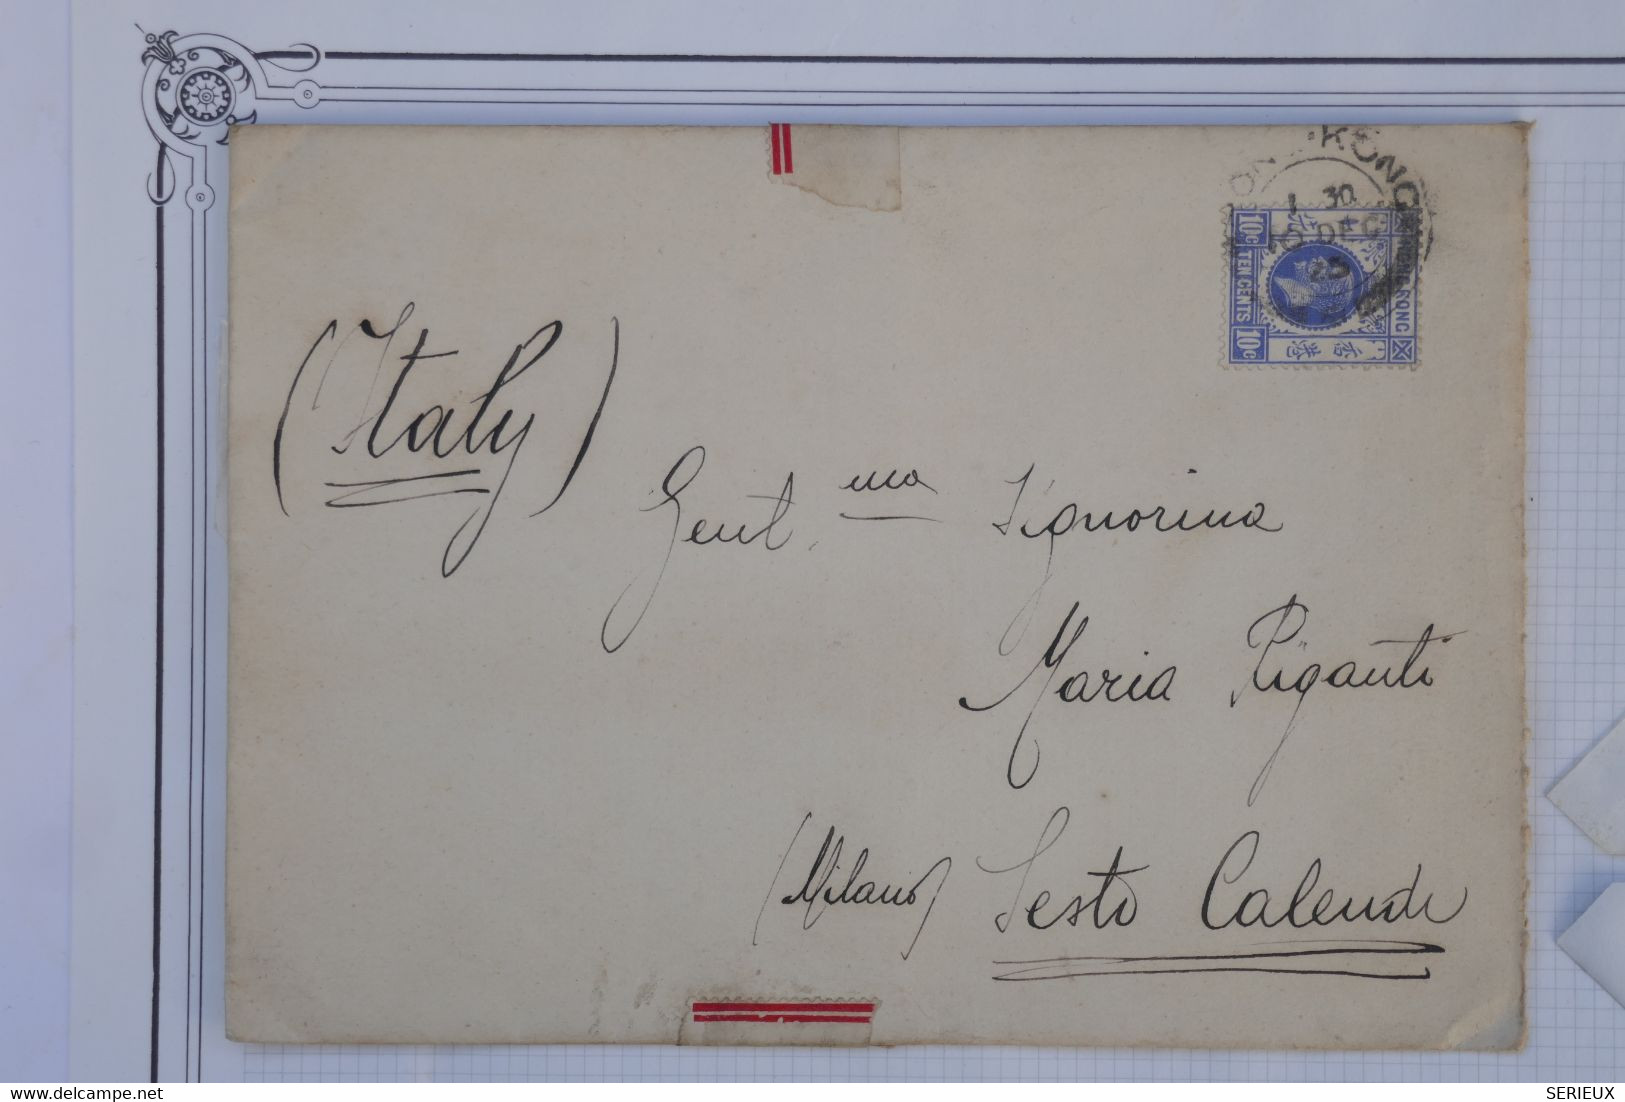 HONG-KONG
1 30
10 DEC
25
10C TEN CENTS 10C
HONG KONG
香港
(Italy)
Gent.ma Signorina
Maria Riganti
(Milano) Sesto Calende
SERIEUX